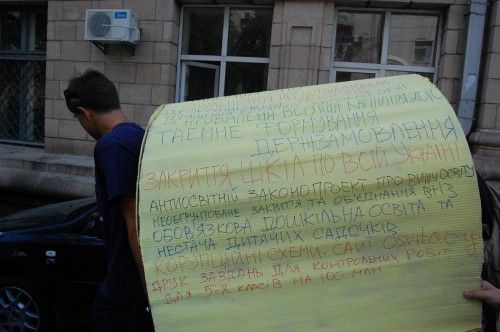 ТАЄМНЕ ФОРМУВАННЯ
ДЕРЖЗАМОВЛЕННЯ
ЗАКРИТТЯ ШКІЛ ПО ВСІЙ УКРАЇНІ
АНТИОСВІТНІЙ ЗАКОНОПРОЕКТ ПРО ВИЩУ ОСВІТУ
НЕОБҐРУНТОВАНЕ ЗАКРИТТЯ ТА ОБ'ЄДНАННЯ ВНЗ
ОБОВ'ЯЗКОВА ДОШКІЛЬНА ОСВІТА ТА
НЕСТАЧА ДИТЯЧИХ САДОЧКІВ
КОРУПЦІЙНІ СХЕМИ: САЙТ Osvita.org
ДРУК ЗАВДАНЬ ДЛЯ КОНТРОЛЬНИХ РОБ.
ДЛЯ 5-8 КЛАСІВ НА 100 МЛН